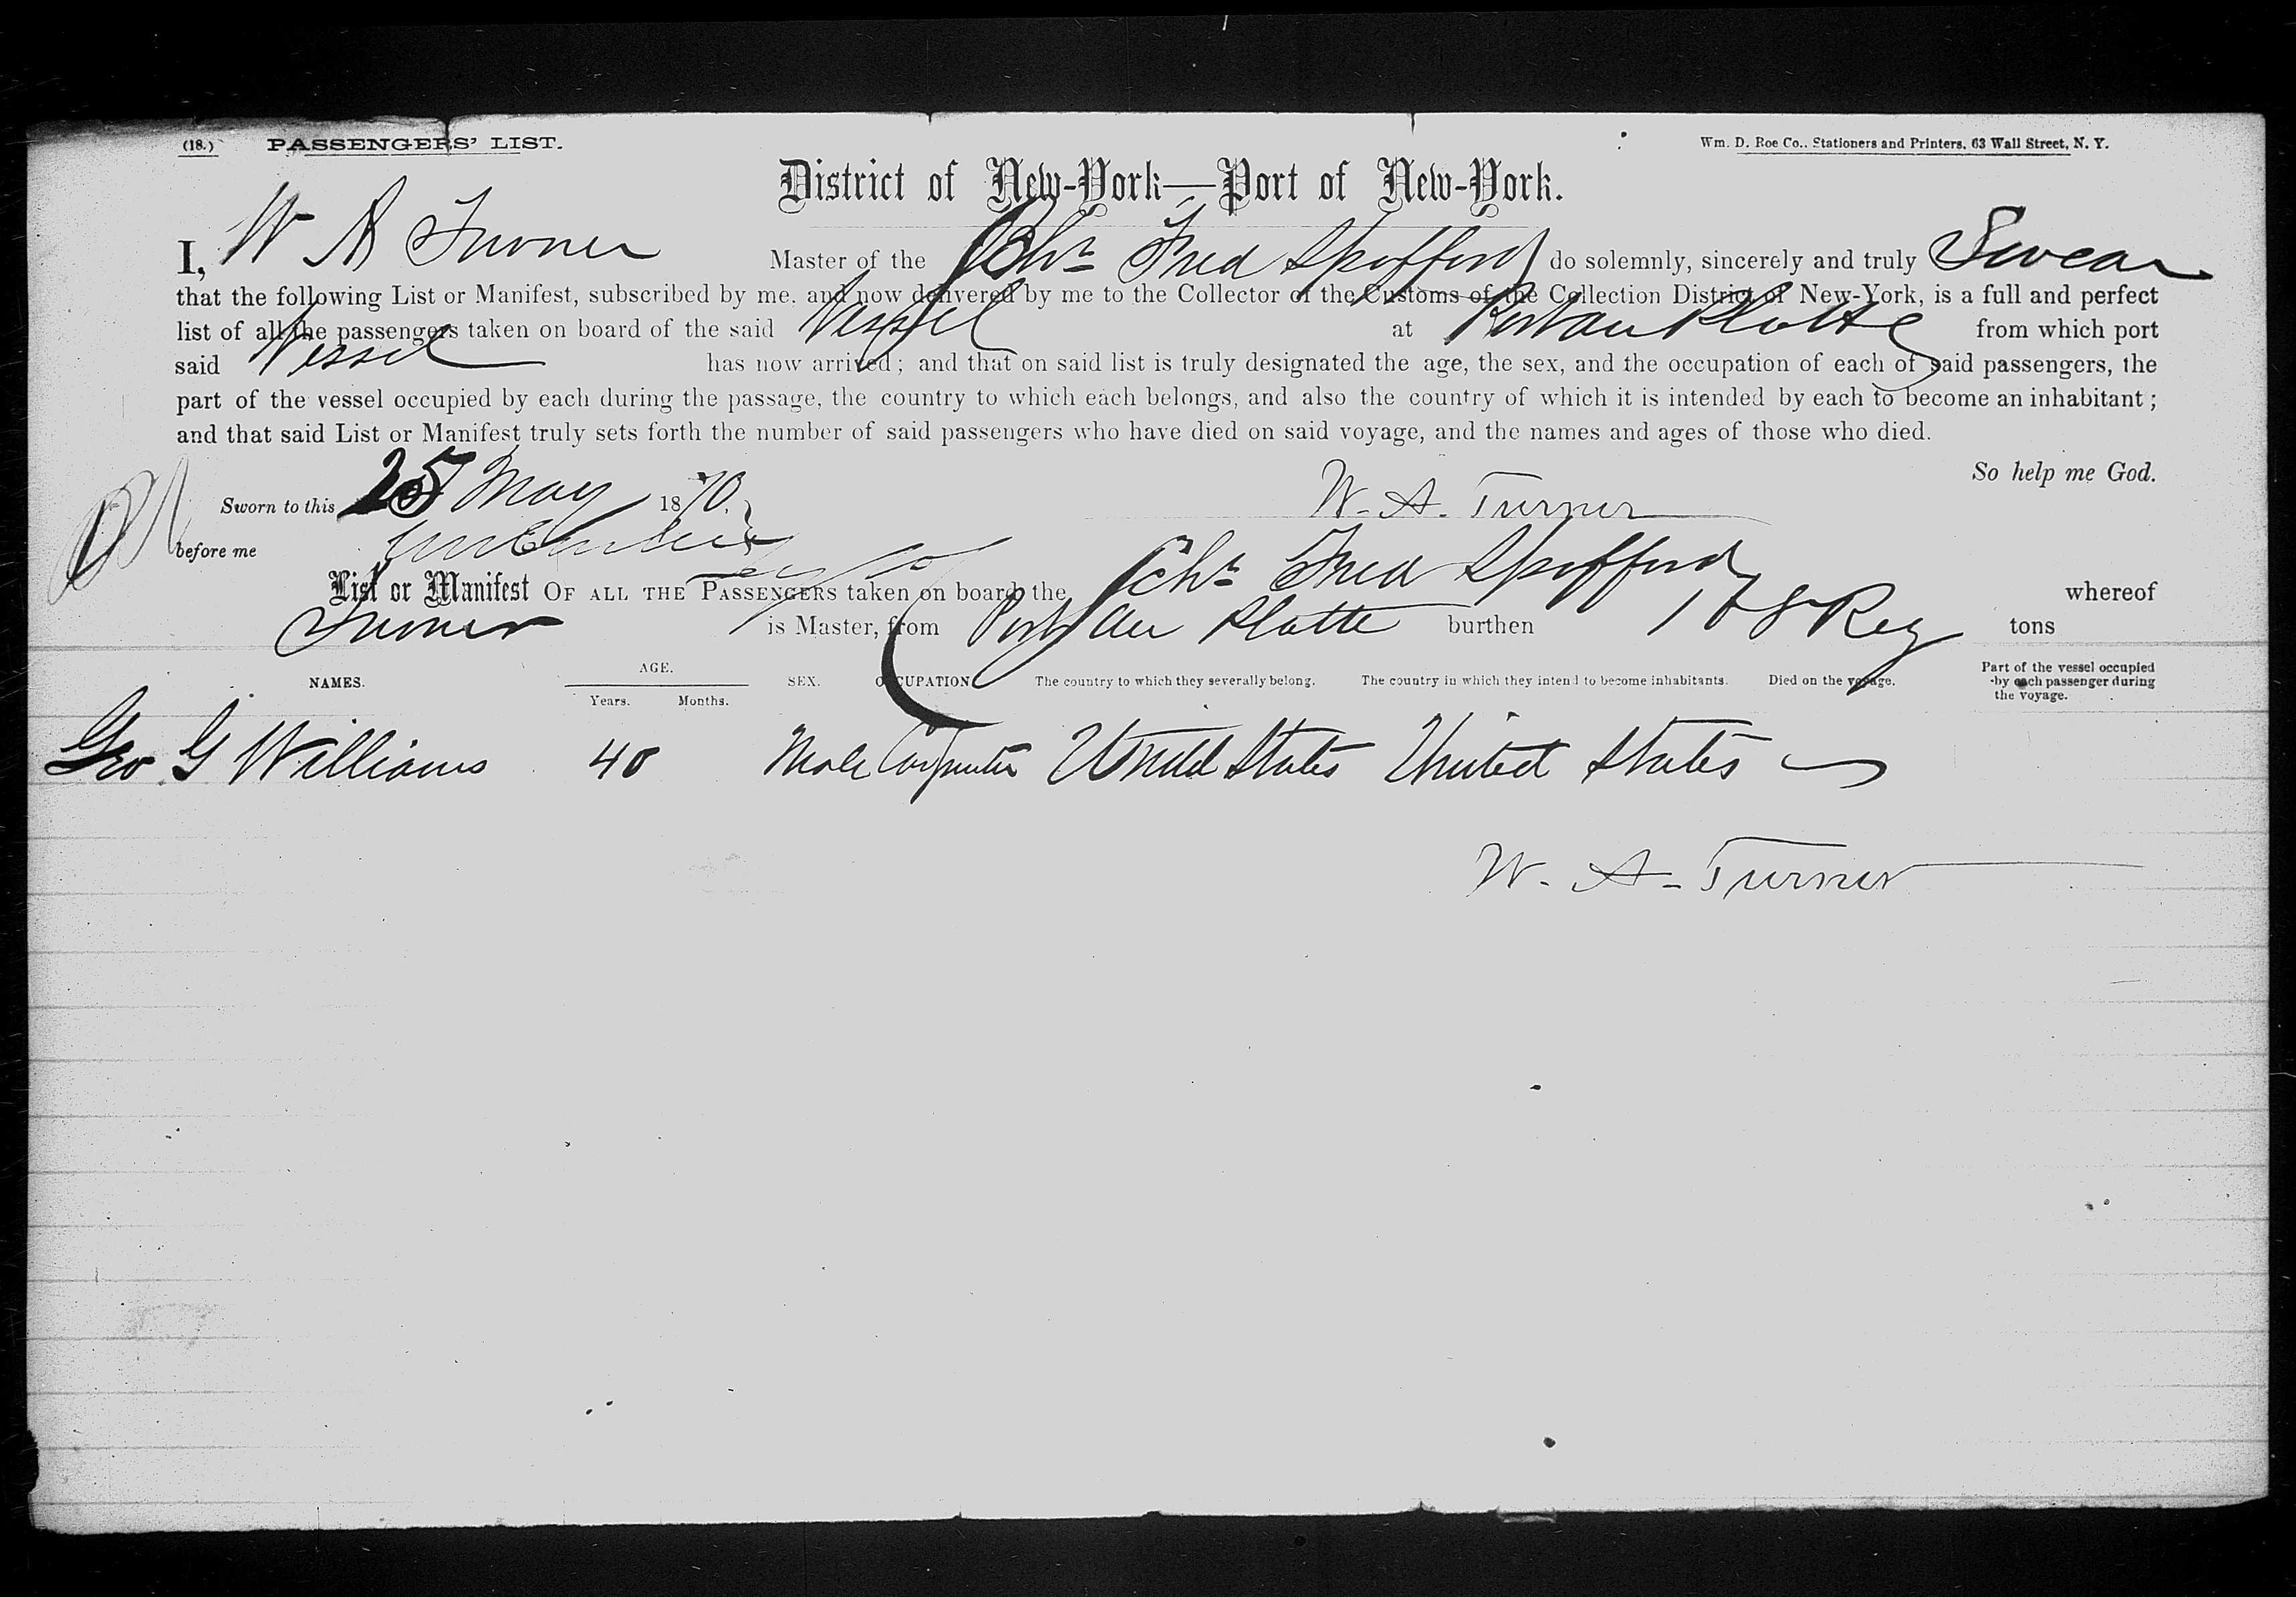 (18.) PASSENGERS' LIST.
Wm. D. Roe Co., Stationers and Printers, 63 Wall Street, N. Y.
District of New-York—Port of New-York.
I, W A Turner Master of the Schr Fred Spofford do solemnly, sincerely and truly Swear
that the following List or Manifest, subscribed by me, and now delivered by me to the Collector of the Customs of the Collection District of New-York, is a full and perfect
list of all the passengers taken on board of the said Vessel at Port au Platte from which port
said Vessel has now arrived; and that on said list is truly designated the age, the sex, and the occupation of each of said passengers, the
part of the vessel occupied by each during the passage, the country to which each belongs, and also the country of which it is intended by each to become an inhabitant;
and that said List or Manifest truly sets forth the number of said passengers who have died on said voyage, and the names and ages of those who died.
So help me God.
Sworn to this 25 May 1870. W. A. Turner
before me
List or Manifest OF ALL THE PASSENGERS taken on board the Schr Fred Spofford whereof
Turner is Master, from Port au Platte burthen Reg tons
NAMES. AGE. Years. Months. SEX. OCCUPATION The country to which they severally belong. The country in which they intend to become inhabitants. Died on the voyage. Part of the vessel occupied by each passenger during the voyage.
Geo G Williams 40 Male Carpenter United States United States
W. A. Turner